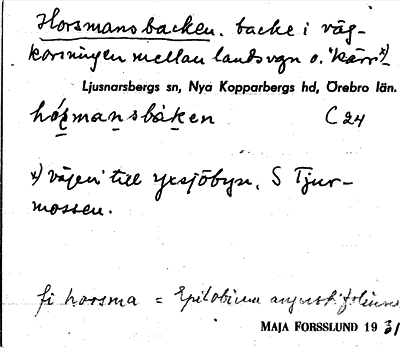 Horsmansbacken. backe i väg-
korsningen mellan landsvgn o. "kärr x)
Ljusnarsbergs sn, Nya Kopparbergs hd, Örebro län.
hórmansbàken C 24
x) vägen till yxsjöbyn, S Tjur-
mossen.
fi horsma = Epilobium angustifolium
MAJA FORSSLUND 19 31